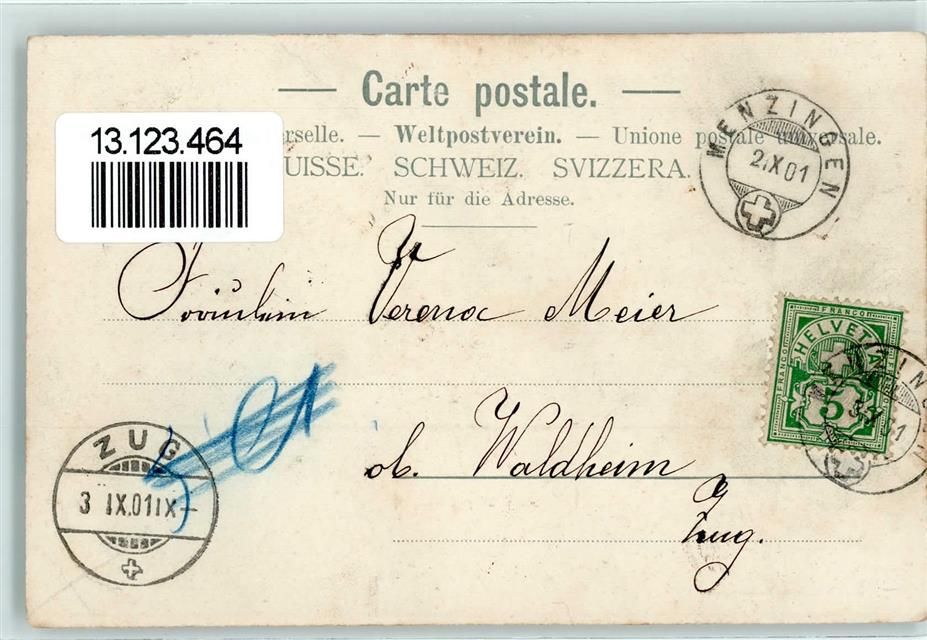 Carte postale.
13.123.464
erselle. — Weltpostverein. — Unione postale universale.
UISSE. SCHWEIZ. SVIZZERA.
Nur für die Adresse.
MENZINGEN
2.X.01
Fräulein Verena Meier
FRANCO
HELVETIA
FRANCO
5
ob. Waldheim
Zug.
ZUG
3 IX.01 IX–